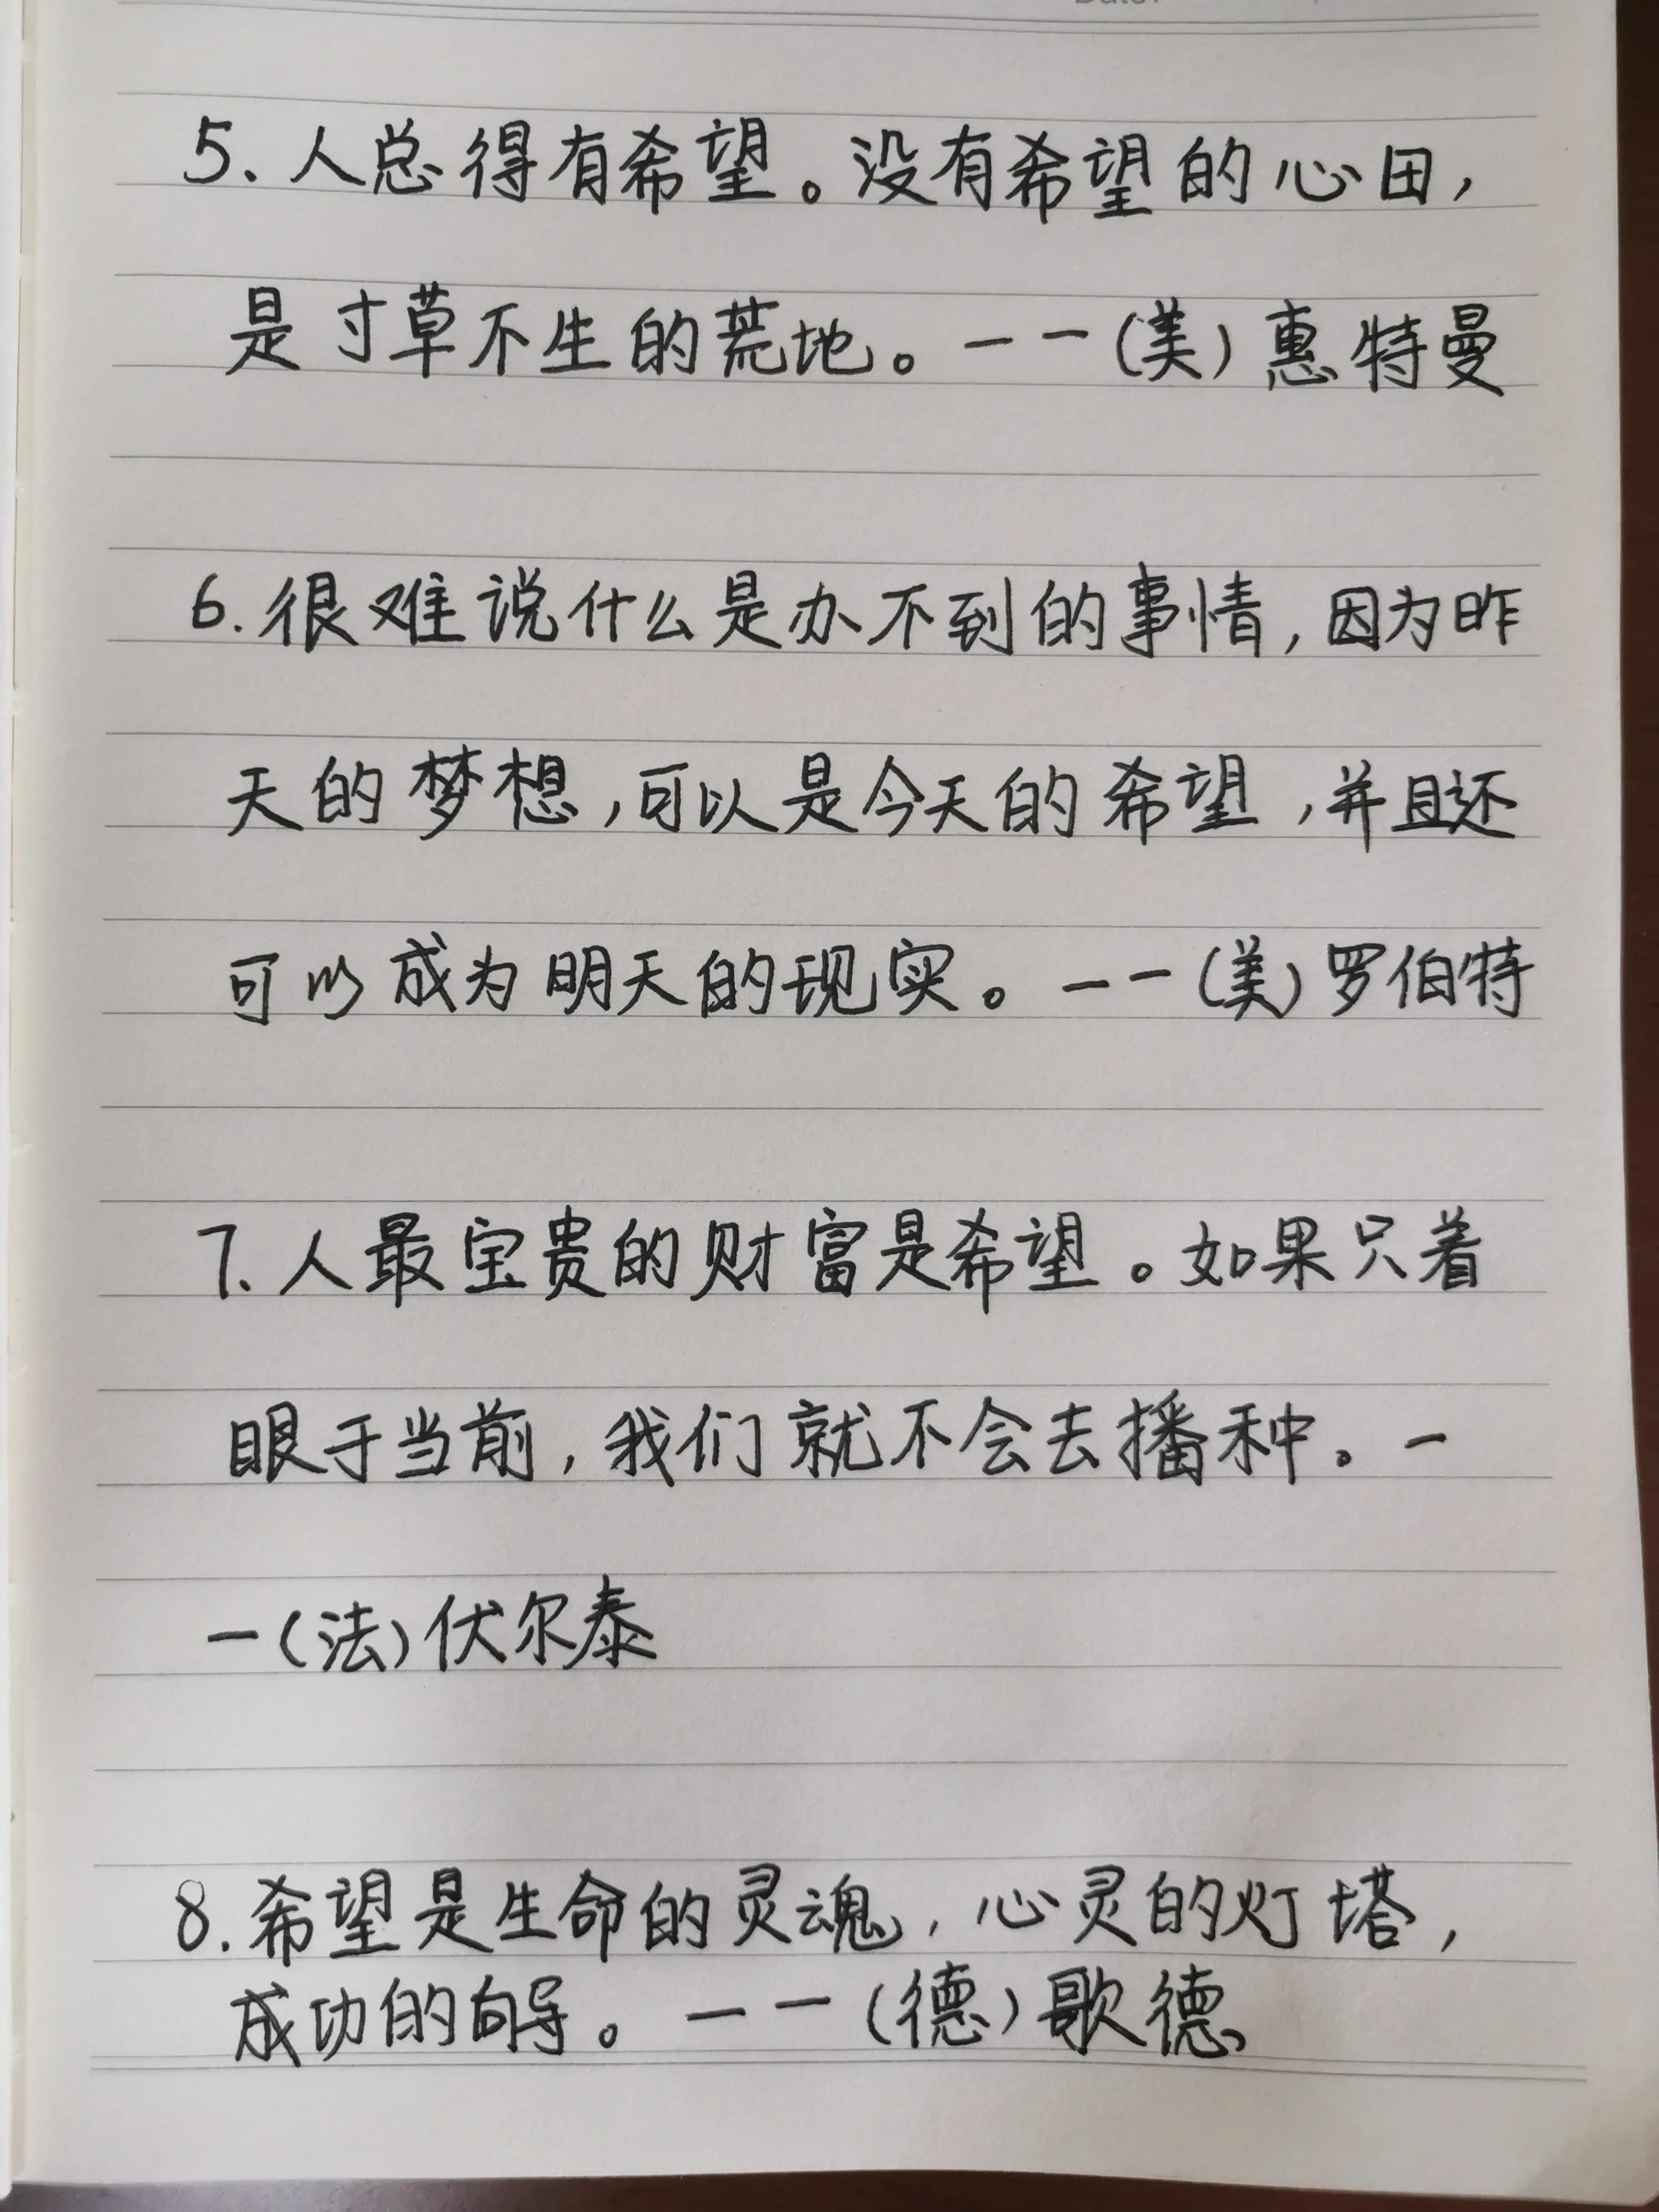 5、人总得有希望。没有希望的心田，
是寸草不生的荒地。——(美)惠特曼
6.很难说什么是办不到的事情,因为昨
天的梦想,可以是今天的希望,并且还
可以成为明天的现实。——(美)罗伯特
7、人最宝贵的财富是希望。如果只着
眼于当前,我们就不会去播种。—
—(法)伏尔泰
8.希望是生命的灵魂,心灵的灯塔,
成功的向导。——(德)歌德